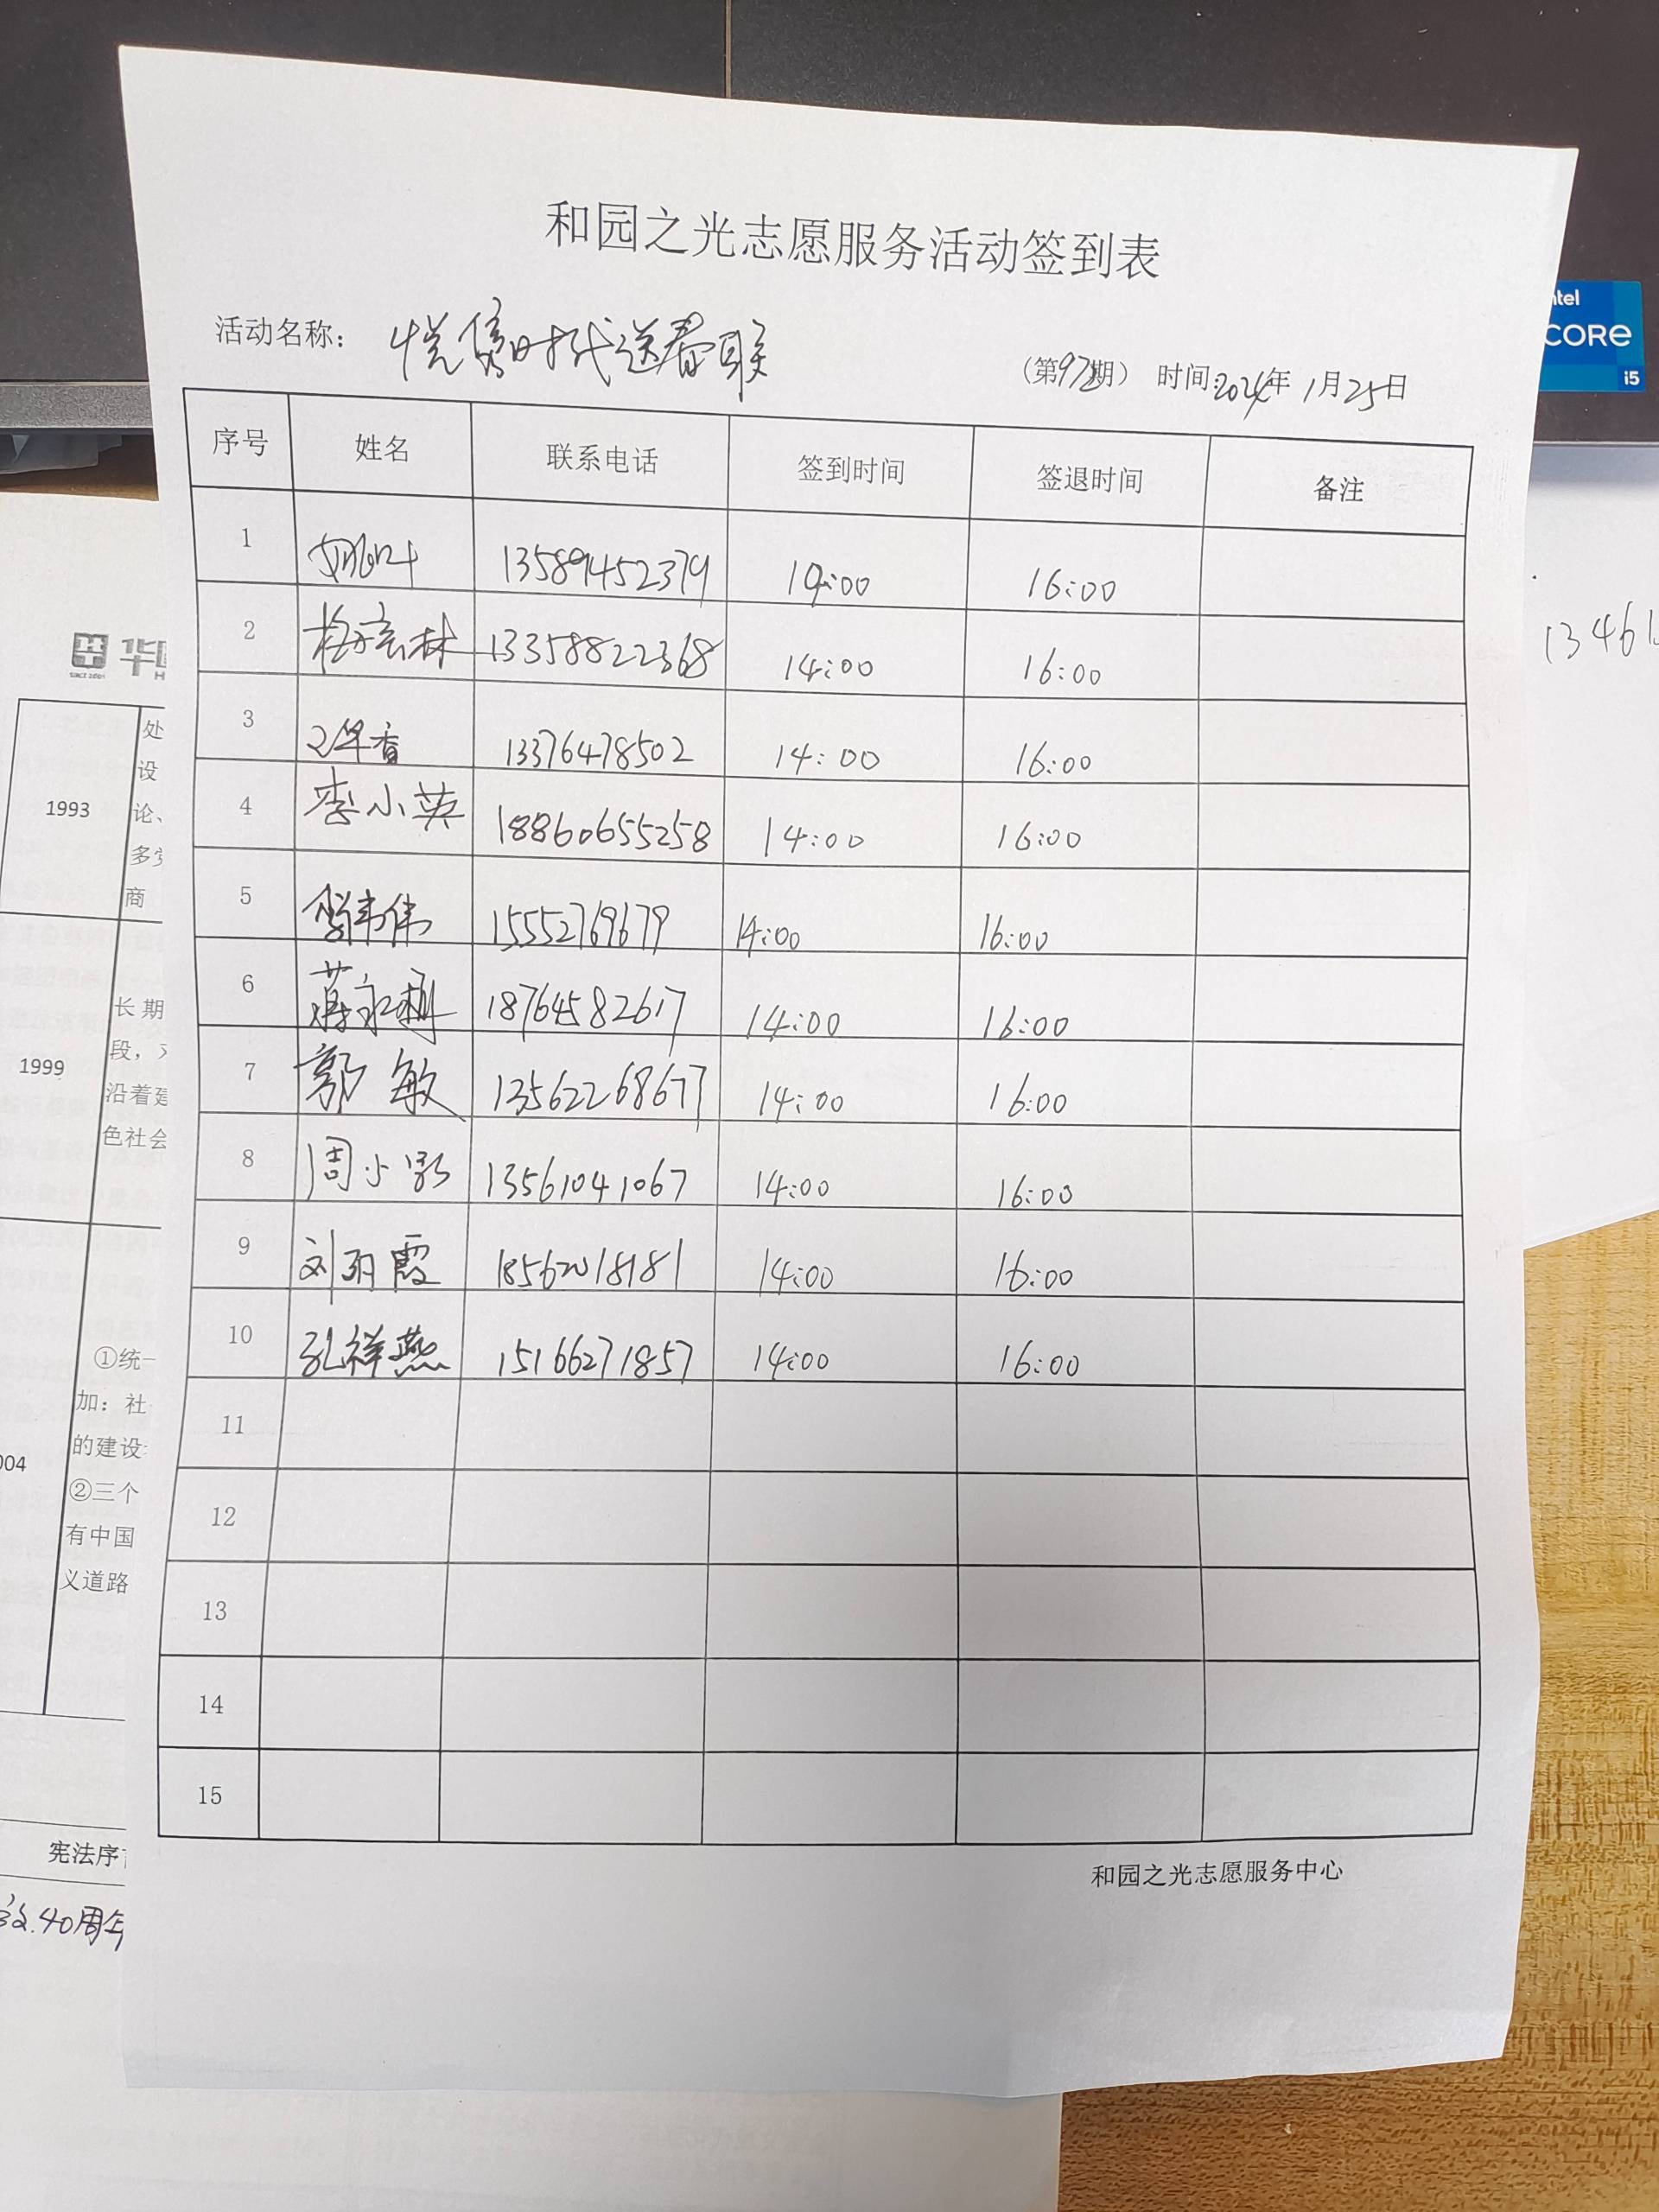 和园之光志愿服务活动签到表
活动名称: 悦 时代送春联
(第97期) 时间:2024年 1月25日
序号 姓名 联系电话 签到时间 签退时间 备注
1 13589452379 14:00 16:00
2 林 13358822368 14:00 16:00
3 香 13376478502 14:00 16:00
4 李小英 18860655258 14:00 16:00
5 伟 15552769679 14:00 16:00
6 蒋永 18764582617 14:00 16:00
7 郭敏 13562268677 14:00 16:00
8 周小 13561041067 14:00 16:00
9 刘丽霞 18562018181 14:00 16:00
10 孔祥燕 15166271857 14:00 16:00
11
12
13
14
15
和园之光志愿服务中心
intel
CORE
i5
13461
华
SINCE 2001
1993
处
设
论、
商
1999
长期
段,
沿着建
色社会
004
①统一
加:社
的建设
②三个
有中国
义道路
宪法序
40周年